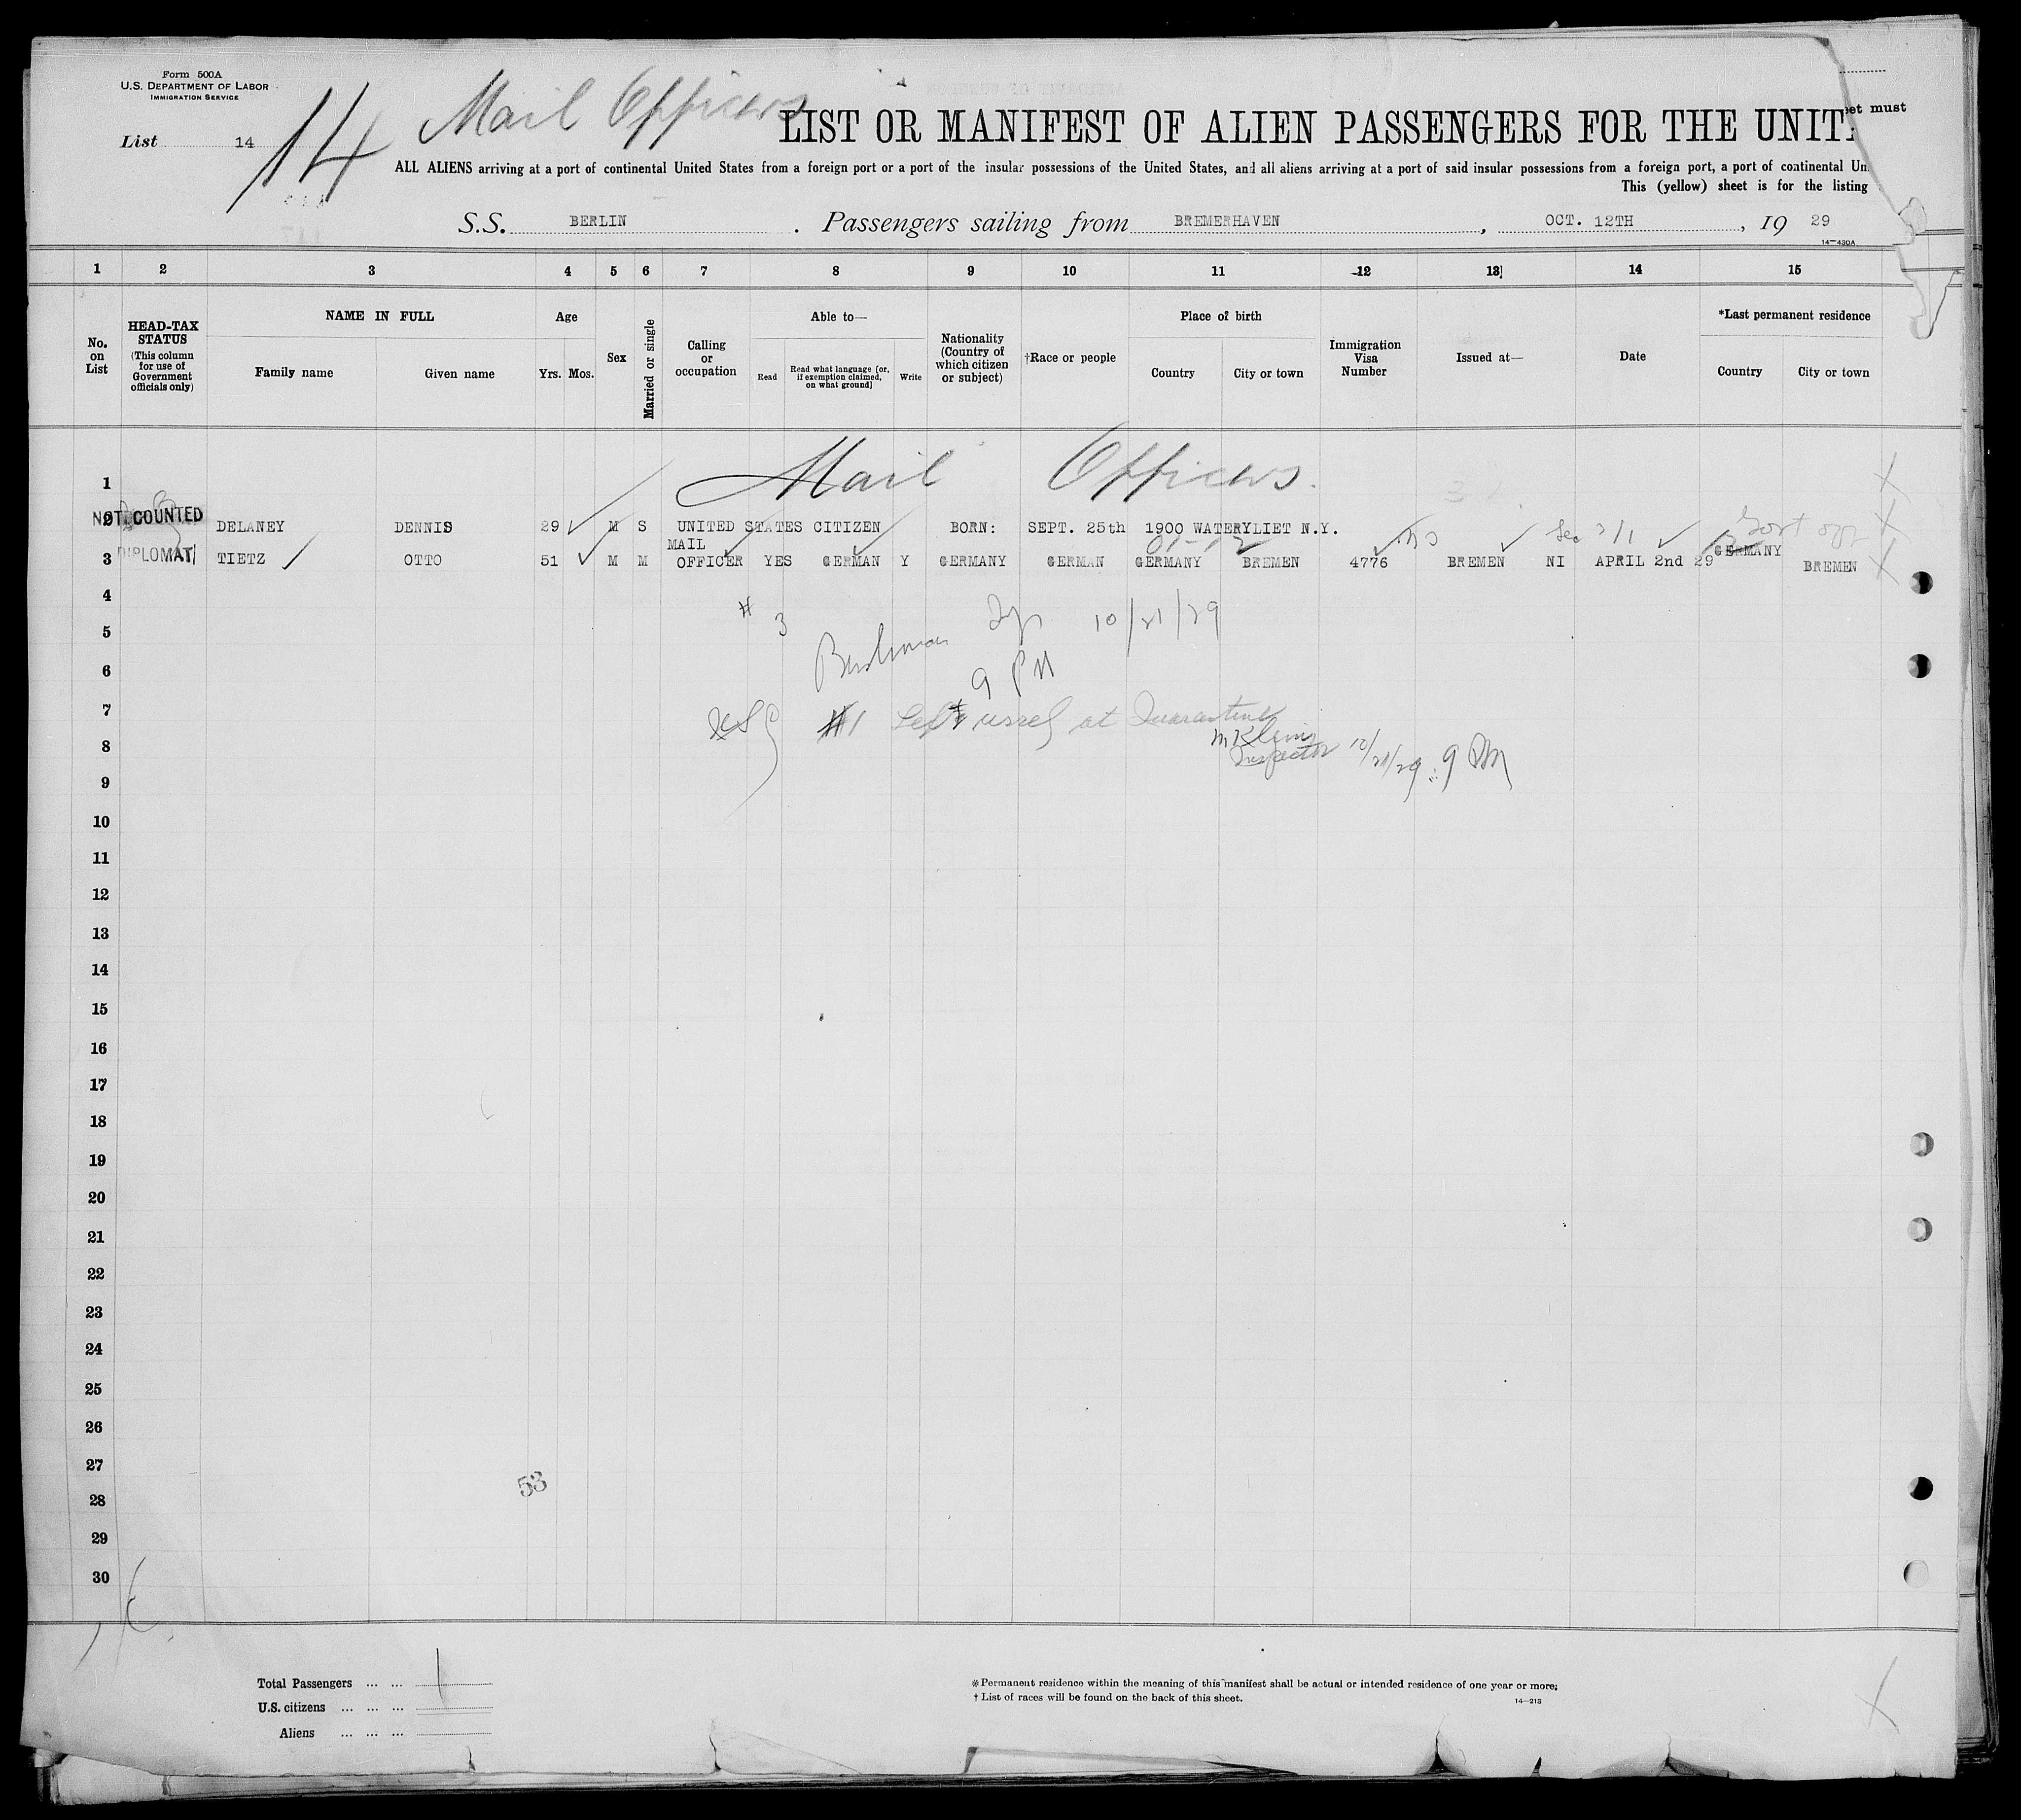 Form 500A
U.S. DEPARTMENT OF LABOR
IMMIGRATION SERVICE
List 14
14 Mail Officers
LIST OR MANIFEST OF ALIEN PASSENGERS FOR THE UNIT
et must
ALL ALIENS arriving at a port of continental United States from a foreign port or a port of the insular possessions of the United States, and all aliens arriving at a port of said insular possessions from a foreign port, a port of continental Un
This (yellow) sheet is for the listing
S.S. BERLIN . Passengers sailing from BREMERHAVEN , OCT. 12TH , 19 29
14—430A
1 2 3 4 5 6 7 8 9 10 11 12 13 14 15
No. on List
HEAD-TAX STATUS
(This column for use of Government officials only)
NAME IN FULL
Family name
Given name
Age
Yrs. Mos.
Sex
Married or single
Calling or occupation
Able to—
Read
Read what language [or, if exemption claimed, on what ground]
Write
Nationality (Country of which citizen or subject)
†Race or people
Place of birth
Country
City or town
Immigration Visa Number
Issued at—
Date
*Last permanent residence
Country
City or town
1 Mail Officers.
NOT COUNTED
2 DELANEY DENNIS 29 M S UNITED STATES CITIZEN BORN: SEPT. 25th 1900 WATERVLIET N.Y.
DIPLOMAT
3 TIETZ OTTO 51 M M MAIL OFFICER YES GERMAN Y GERMANY GERMAN GERMANY BREMEN 4776 BREMEN NI APRIL 2nd 29 GERMANY BREMEN
4
# 3 10/21/29
5
6
9 PM
7 #1 Left vessel at Quarantine
8 M Klein
Inspector 10/21/29 : 9 PM
9
10
11
12
13
14
15
16
17
18
19
20
21
22
23
24
25
26
27
53
28
29
30
Total Passengers ... ... 1
U.S. citizens ... ... ...
Aliens ... ... ...
*Permanent residence within the meaning of this manifest shall be actual or intended residence of one year or more.
†List of races will be found on the back of this sheet.
14—213